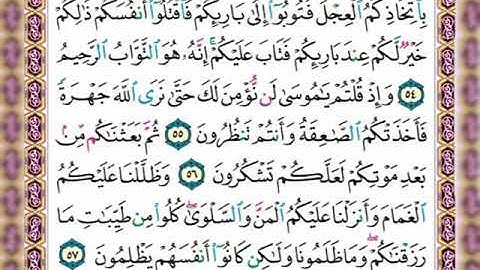 بِٱتِّخَاذِكُمُ ٱلۡعِجۡلَ فَتُوبُوٓاْ إِلَىٰ بَارِئِكُمۡ فَٱقۡتُلُوٓاْ أَنفُسَكُمۡ ذَٰلِكُمۡ
خَيۡرٞ لَّكُمۡ عِندَ بَارِئِكُمۡ فَتَابَ عَلَيۡكُمۡۚ إِنَّهُۥ هُوَ ٱلتَّوَّابُ ٱلرَّحِيمُ
٥٤ وَإِذۡ قُلۡتُمۡ يَٰمُوسَىٰ لَن نُّؤۡمِنَ لَكَ حَتَّىٰ نَرَى ٱللَّهَ جَهۡرَةٗ
فَأَخَذَتۡكُمُ ٱلصَّٰعِقَةُ وَأَنتُمۡ تَنظُرُونَ ٥٥ ثُمَّ بَعَثۡنَٰكُم مِّنۢ
بَعۡدِ مَوۡتِكُمۡ لَعَلَّكُمۡ تَشۡكُرُونَ ٥٦ وَظَلَّلۡنَا عَلَيۡكُمُ
ٱلۡغَمَامَ وَأَنزَلۡنَا عَلَيۡكُمُ ٱلۡمَنَّ وَٱلسَّلۡوَىٰۖ كُلُواْ مِن طَيِّبَٰتِ مَا
رَزَقۡنَٰكُمۡۖ وَمَا ظَلَمُونَا وَلَٰكِن كَانُوٓاْ أَنفُسَهُمۡ يَظۡلِمُونَ ٥٧